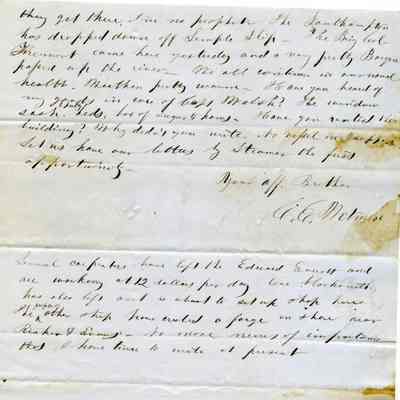 they get there, I'm no prophet The Southampton
has dropped down off Semple Slip - The Brig Col
Fremont came here yesterday and a very pretty Barque
passed up the river - We all continue in our usual
health. Weather pretty warm - Have you heard of
my goods in care of Capt Welsh? The window
sash. beds, box of sugar & hams. Have you rented the
building? Why didn't you write.
Let us have our letters by Steamer the first
opportunity -
Your aff. Brother
Several carpenters have left the Edward Everett and
are working at 12 dollars per day one blacksmith
has also left and is about to set up shop here
The other shop have erected a forge on shore near
- No more news of importance
that I have time to write at present